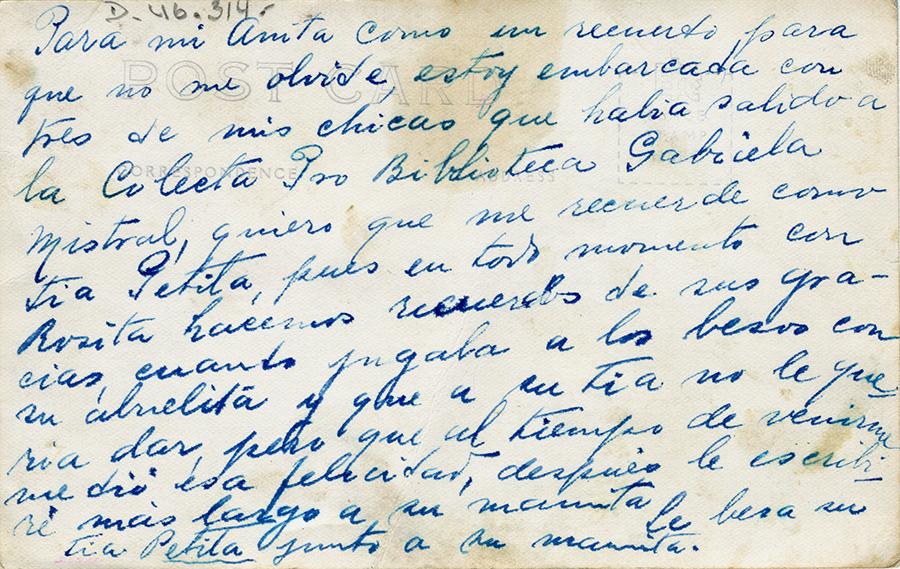 D-46.314.
Para mi Anita como un recuerdo para
POST CARD
que no me olvide estoy embarcada con
tres de mis chicas que había salido a
CORRESPONDENCE
ADDRESS
la Colecta Pro Biblioteca Gabriela
Mistral, quiero que me recuerde como
tia Petita, pues en todo momento con
Rosita hacemos recuerdos de sus gra-
cias, cuando jugaba a los besos con
su abuelita y que a su tia no le que-
ria dar, pero que al tiempo de venirme
me dió esa felicidad, después le escribi-
ré más largo a su mamita le besa su
tia Petita junto a su mamita.